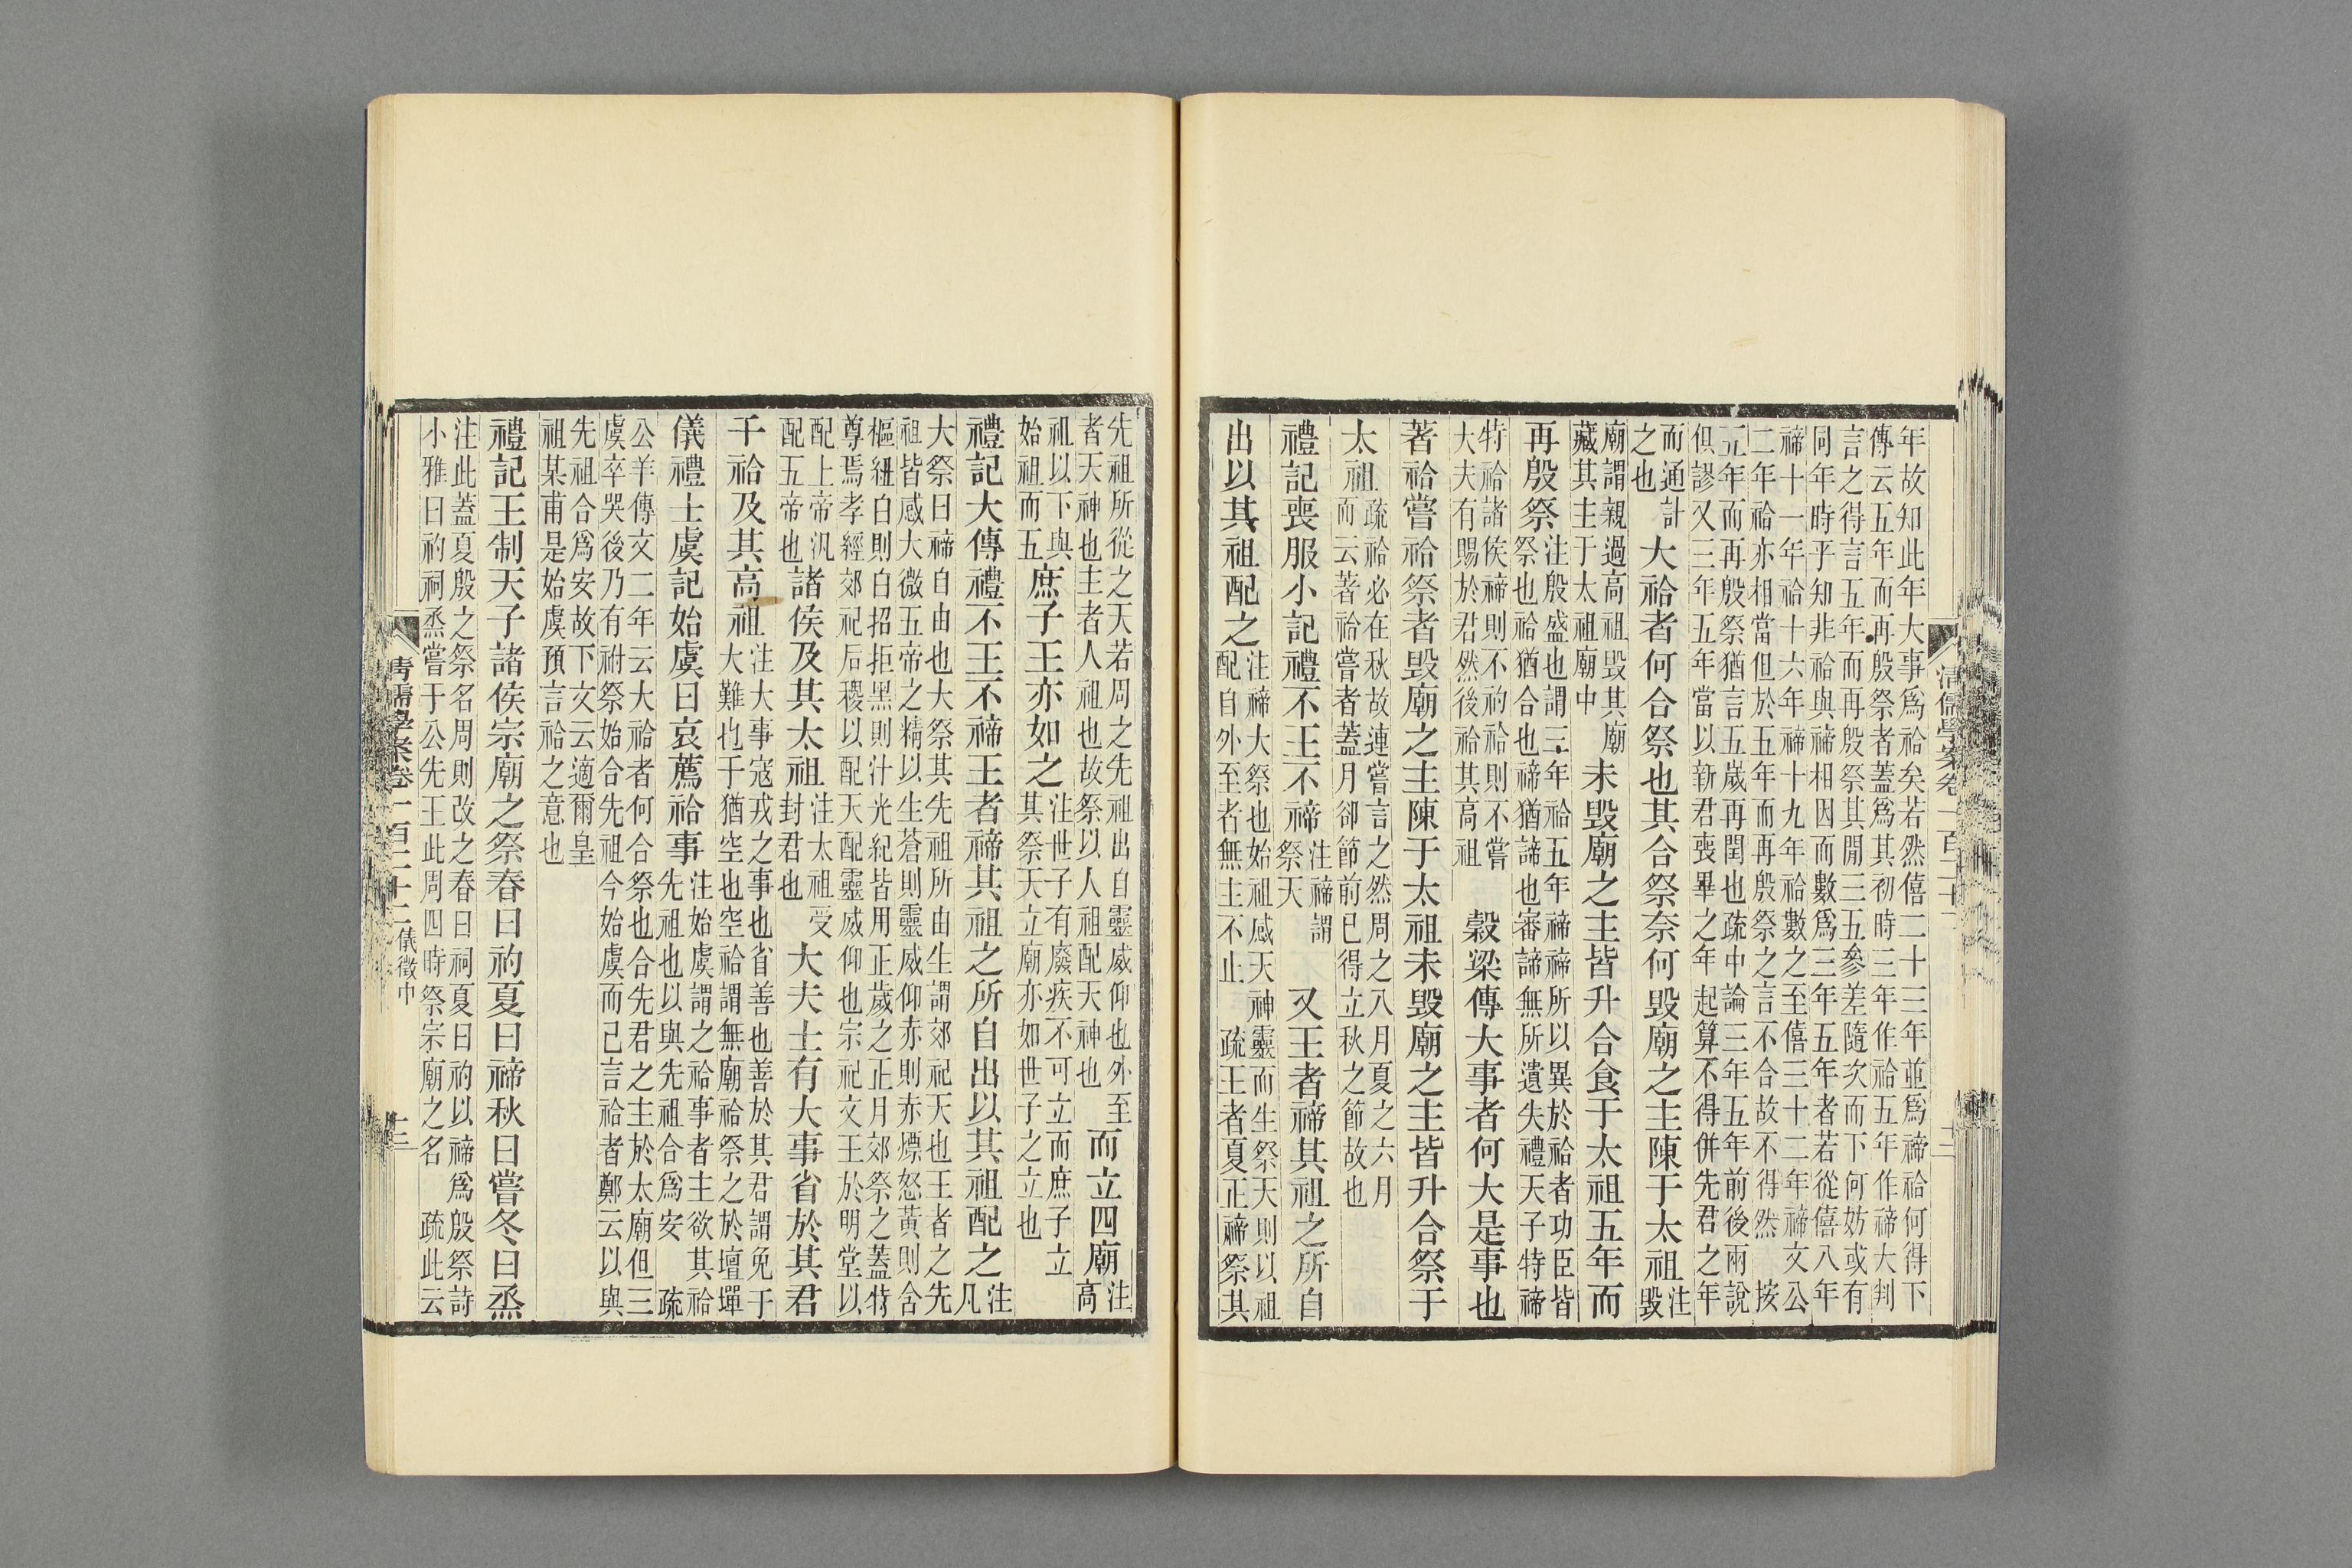 年故知此年大事爲祫矣若然僖二十三年並爲禘祫何得下
傳云五年而再殷祭者蓋爲其初時三年作祫五年作禘大判
言之得言五年而再殷祭其閒三五參差隨次而下何妨或有
同年時乎知非祫與禘相因而數爲三年五年者若從僖八年
禘十一年祫十六年禘十九年祫數之至僖三十二年禘文公
二年祫亦相當但於五年而再殷祭之言不合故不得然　按
五年而再殷祭猶言五歲再閏也疏中論三年五年前後兩說
但謬又三年五年當以新君喪畢之年起算不得併先君之年
而通計之也大祫者何合祭也其合祭奈何毀廟之主陳于太祖注毀
廟謂親過高祖毀其廟藏其主于太祖廟中未毀廟之主皆升合食于太祖五年而
再殷祭注殷盛也謂三年祫五年禘禘所以異於祫者功臣皆祭也祫猶合也禘猶諦也審諦無所遺失禮天子特禘
特祫諸侯禘則不礿祫則不嘗大夫有賜於君然後祫其高祖　穀梁傳大事者何大是事也
著祫嘗祫祭者毀廟之主陳于太祖未毀廟之主皆升合祭于
太祖疏祫必在秋故連嘗言之然周之八月夏之六月而云著祫嘗者蓋月卻節前已得立秋之節故也
禮記喪服小記禮不王不禘注禘謂祭天　又王者禘其祖之所自
出以其祖配之注禘大祭也始祖感天神靈而生祭天則以祖配自外至者無主不止　疏王者夏正禘祭其
清儒學案卷一百二十二
先祖所從之天若周之先祖出自靈威仰也外至者天神也主者人祖也故祭以人祖配天神也而立四廟注高
祖以下與始祖而五庶子王亦如之注世子有廢疾不可立而庶子立其祭天立廟亦如世子之立也
禮記大傳禮不王不禘王者禘其祖之所自出以其祖配之注凡
大祭曰禘自由也大祭其先祖所由生謂郊祀天也王者之先
祖皆感大微五帝之精以生蒼則靈威仰赤則赤熛怒黃則含
樞紐白則白招拒黑則汁光紀皆用正歲之正月郊祭之蓋特
尊焉孝經郊祀后稷以配天配靈威仰也宗祀文王於明堂以
配上帝汎配五帝也諸侯及其太祖注太祖受封君也大夫士有大事省於其君
干祫及其高祖注大事寇戎之事也省善也善於其君謂免于大難也干猶空也空祫謂無廟祫祭之於壇墠
儀禮士虞記始虞曰哀薦祫事注始虞謂之祫事者主欲其祫先祖也以與先祖合爲安　疏
公羊傳文二年云大祫者何合祭也合先君之主於太廟但三
虞卒哭後乃有祔祭始合先祖今始虞而已言祫者鄭云以與
先祖合爲安故下文云適爾皇
祖某甫是始虞預言祫之意也
禮記王制天子諸侯宗廟之祭春曰礿夏曰禘秋曰嘗冬曰烝
注此蓋夏殷之祭名周則改之春曰祠夏曰礿以禘爲殷祭詩
小雅曰礿祠烝嘗于公先王此周四時祭宗廟之名　疏此云
清儒學案卷一百二十二　儀徵中　十三